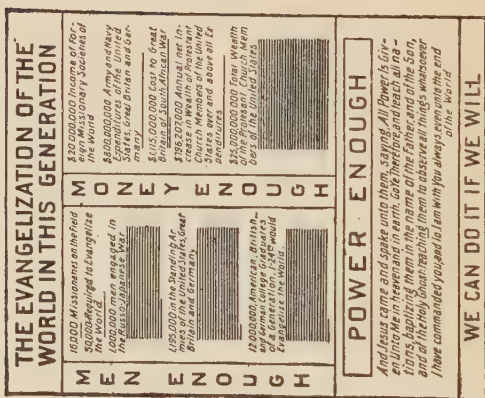 THE EVANGELIZATION OF THE
WORLD IN THIS GENERATION
MEN ENOUGH
16,000 Missionaries on the Field
50,000 Required to Evangelize
the World.
1,000,000 Men engaged in
the Russo-Japanese War
1,195,000 in the Standing Ar
mies of the United States, Great
Britain and Germany
12,000,000, American, British
and German College Graduates
of a Generation. 1-24th would
Evangelize the World.
MONEY ENOUGH
$20,000,000 Income of For-
eign Missionary Societies of
the World
$800,000,000 Army and Navy
Expenditures of the United
States, Great Britian and Ger-
many
$1,115,000,000 Cost to Great
Britain of South African War
$796,207,000 Annual net In-
crease in Wealth of Protestant
Church Members of the United
States over and above all Ex
penditures
$25,000,000,000 Total Wealth
of the Protestant Church Mem
bers of the United States
POWER ENOUGH
And Jesus came and spake unto them, saying, All Power is Giv-
en Unto Me in heaven and in earth. Go ye therefore, and teach all na-
tions, baptizing them in the name of the Father, and of the Son,
and of the Holy Ghost: teaching them to observe all things whatsoever
I have commanded you, and lo I am with you always, even unto the end
of the World
WE CAN DO IT IF WE WILL